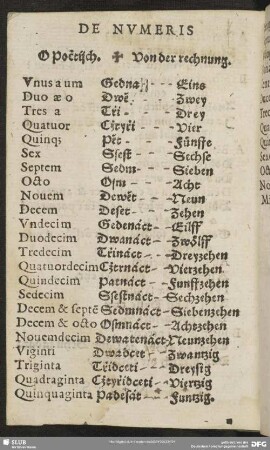 DE NVMERIS
O Počtĳch. ✤ Von der rechnung.
Vnus a um Gedna - - - Eins
Duo æ o Dwě - - - Zwey
Tres a Tři - - - Drey
Quatuor Cžtyři - - Vier
Quinqʒ Pět - - - Fünffe
Sex Ssest - - - Sechse
Septem Sedm - - - Sieben
Octo Osm - - - Acht
Nouem Dewět - - - Neun
Decem Deset - - - Zehen
Vndecim Gedenáct - - Eilff
Duodecim Dwanáct - - Zwölff
Tredecim Třináct - - Dreyzehen
Quatuordecim Cžtrnáct - - Vierzehen
Quindecim Patnáct - - Funffzehen
Sedecim Ssestnáct - - Sechzehen
Decem & septē Sedmnáct - - Siebenzehen
Decem & octo Osmnáct - - Achtzehen
Nouemdecim Dewatenáct - Neunzehen
Viginti Dwadcet - - Zwantzig
Triginta Třidceti - - Dreyssig
Quadraginta Cžtyřidceti - - Viertzig
Quinquaginta Padesát - - Funtzig.
SLUB